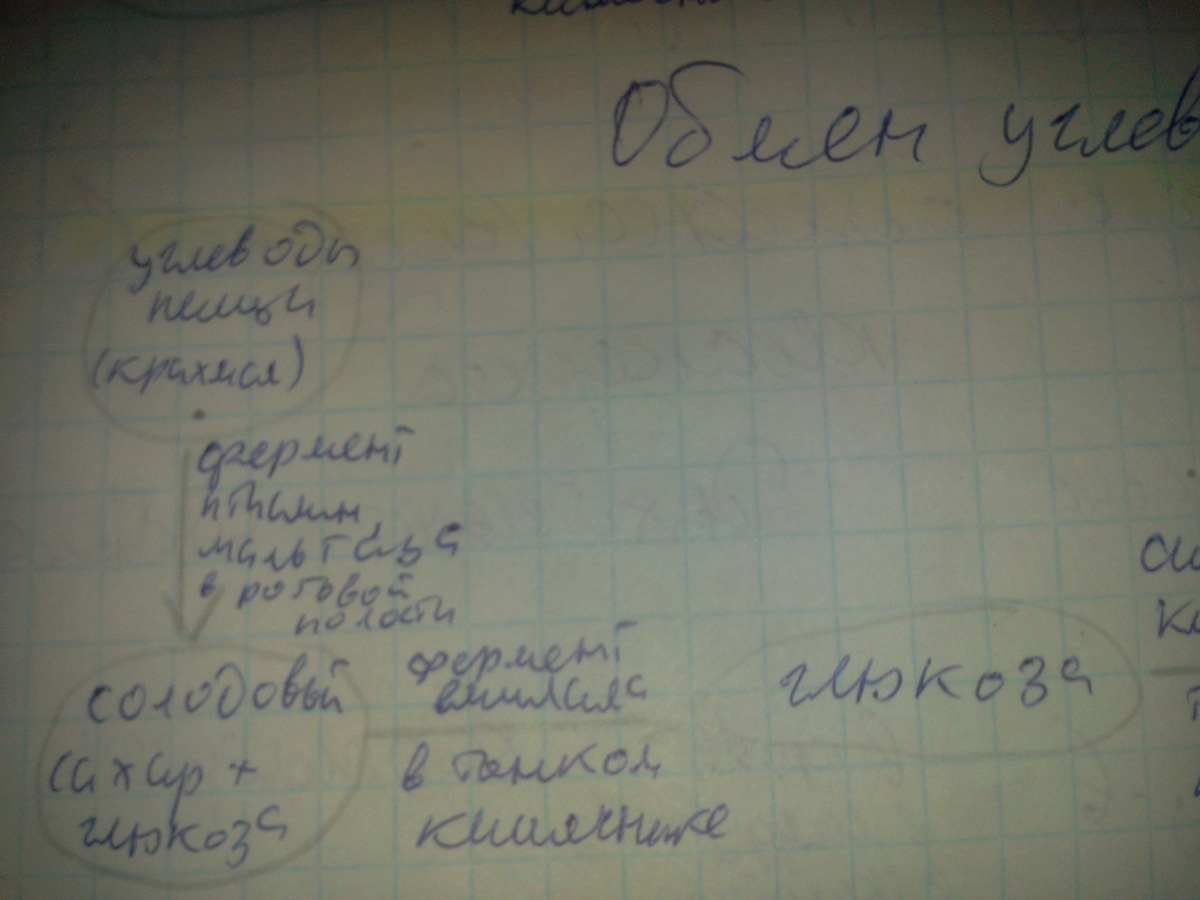 Обмен углев
углеводы
пищи
(крахмал)
фермент
птиалин
мальтаза
в ротовой
полости
солодовый
сахар +
глюкоза
фермент
амилаза
в тонком
кишечнике
глюкоза